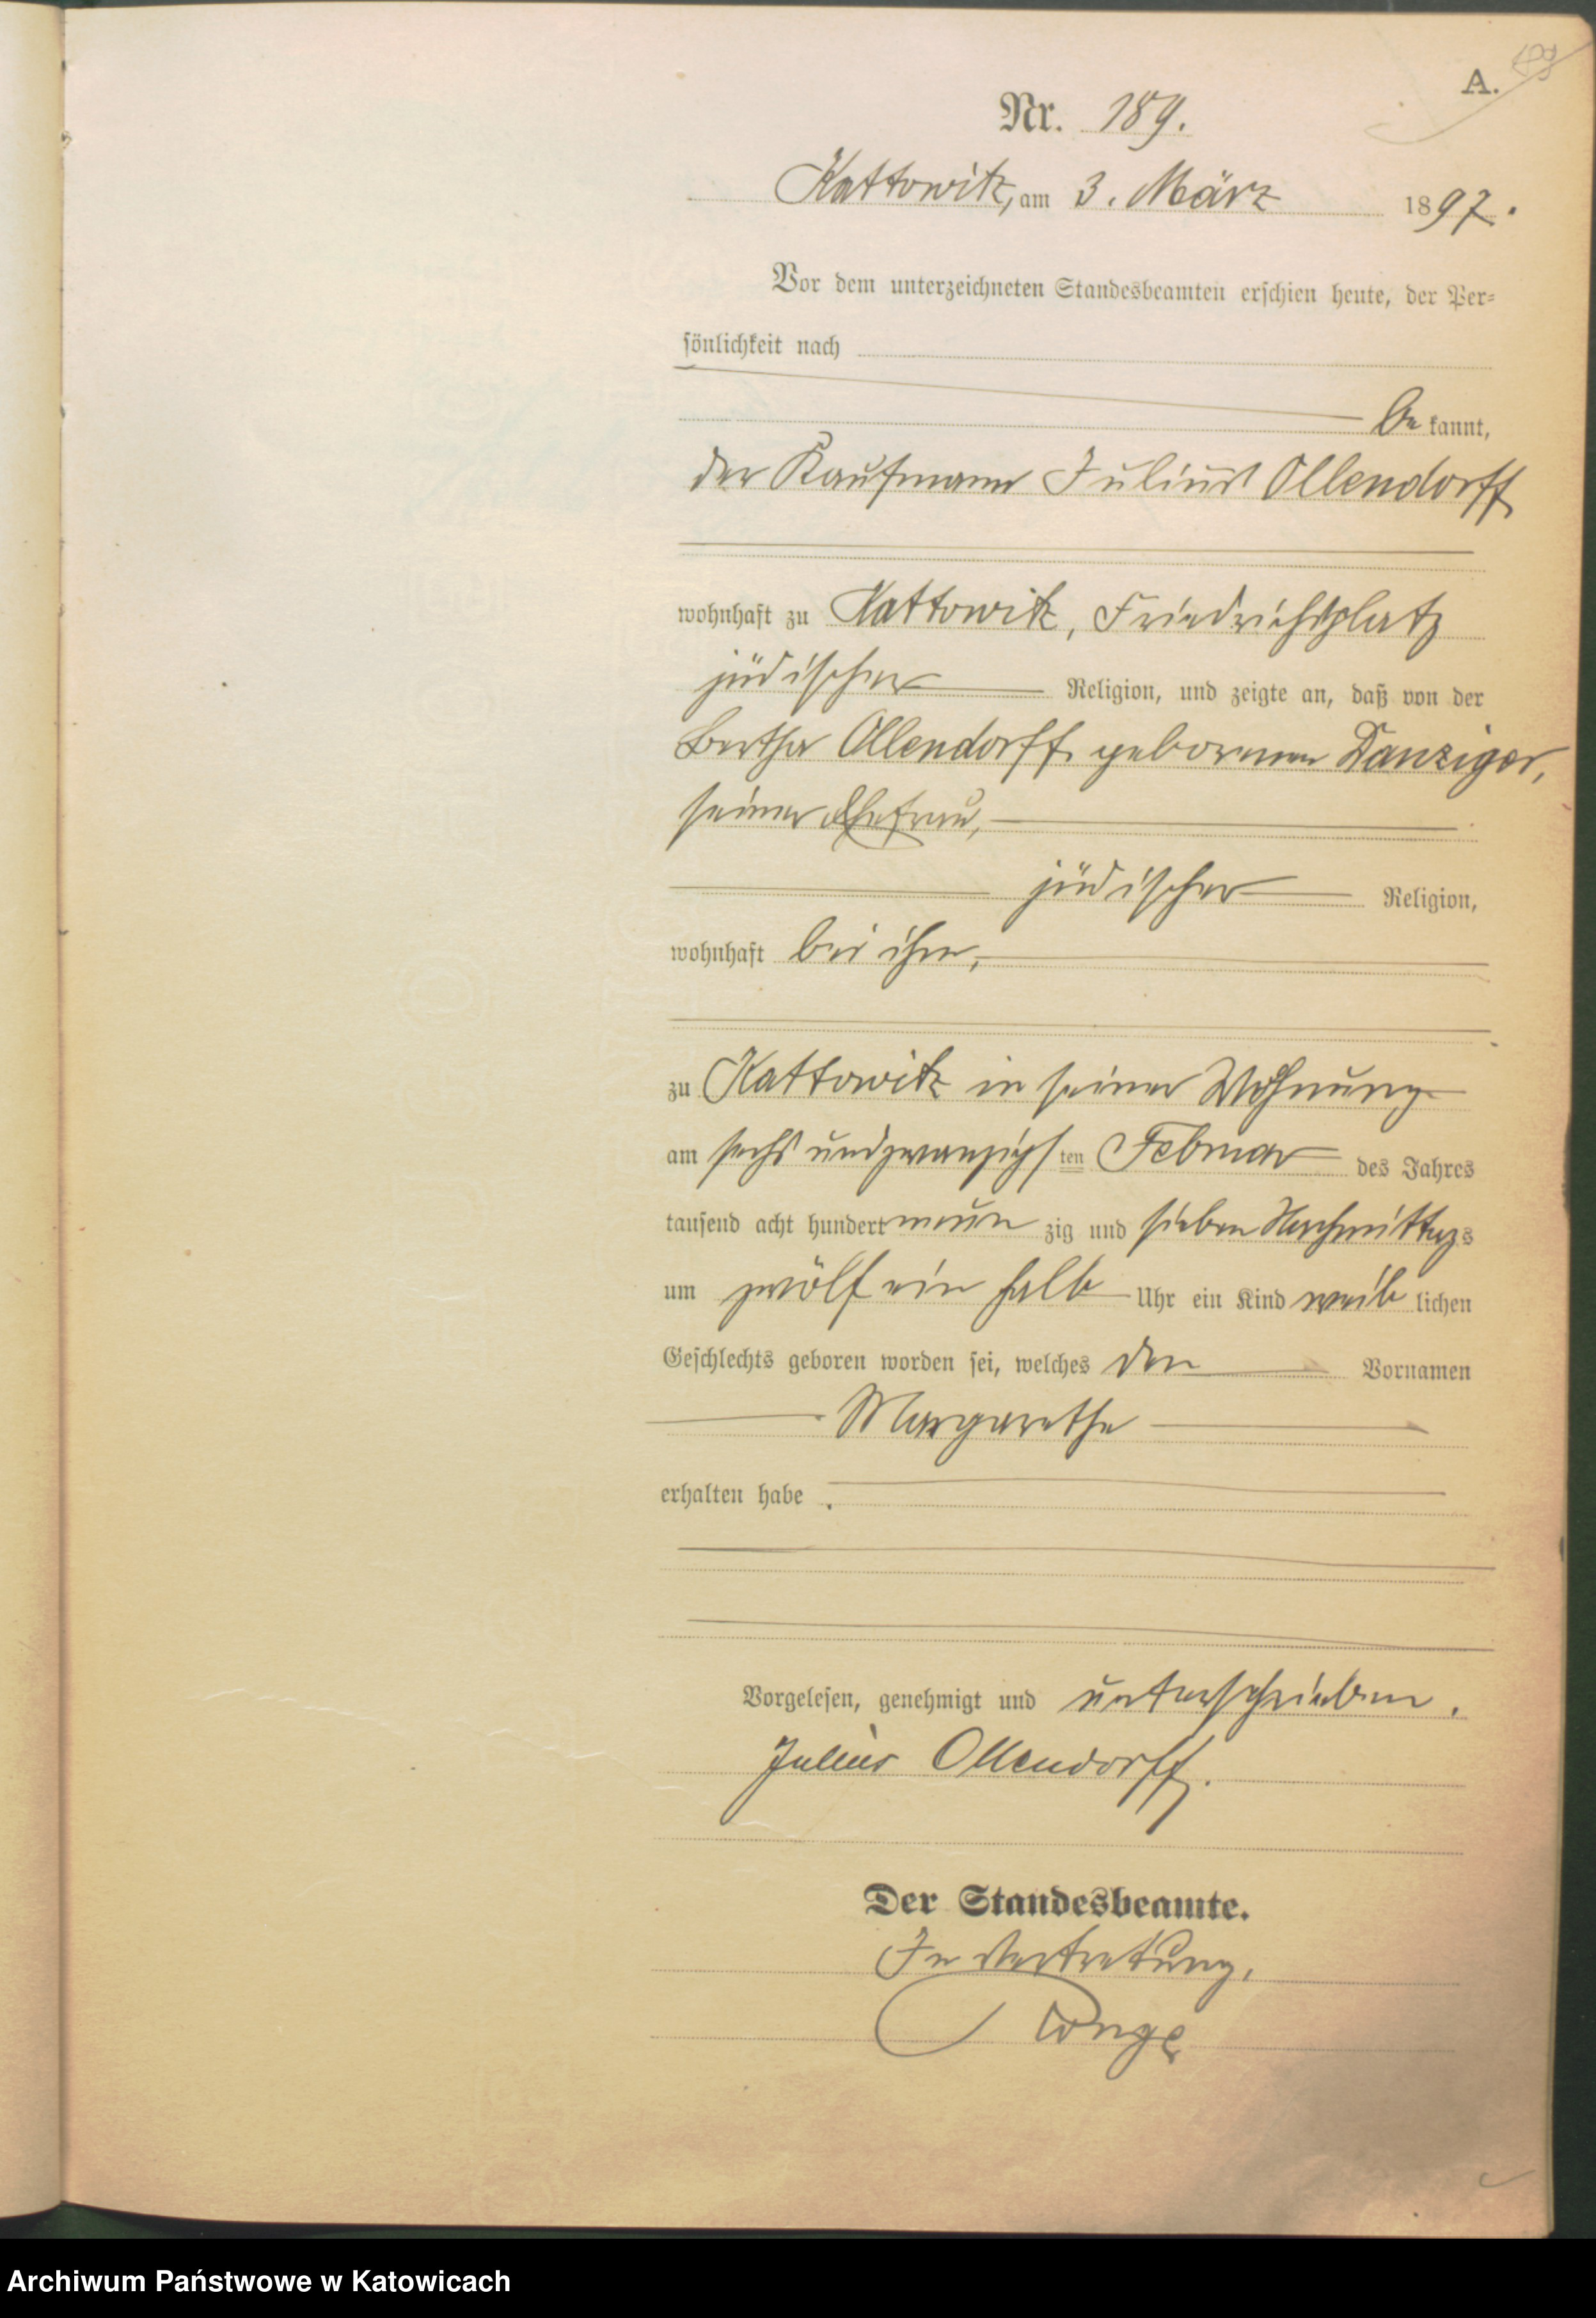 A.
Nr. 189.
Kattowitz, am 3. März 1897.
Vor dem unterzeichneten Standesbeamten erschien heute, der Per-
sönlichkeit nach
be kannt,
der Kaufmann Julius Ollendorff
wohnhaft zu Kattowitz, Friedrichsplatz
jüdischer Religion, und zeigte an, daß von der
Bertha Ollendorff geborenen Danziger,
seiner Ehefrau,
jüdischer Religion,
wohnhaft bei ihm,
zu Kattowitz in seiner Wohnung
am sechsundzwanzigsten Februar des Jahres
tausend acht hundert neun zig und sieben Nachmittags
um zwölf ein halb Uhr ein Kind weib lichen
Geschlechts geboren worden sei, welches den Vornamen
Margarethe
erhalten habe.
Vorgelesen, genehmigt und unterschrieben.
Julius Ollendorff.
Der Standesbeamte.
In Vertretung.
Archiwum Państwowe w Katowicach